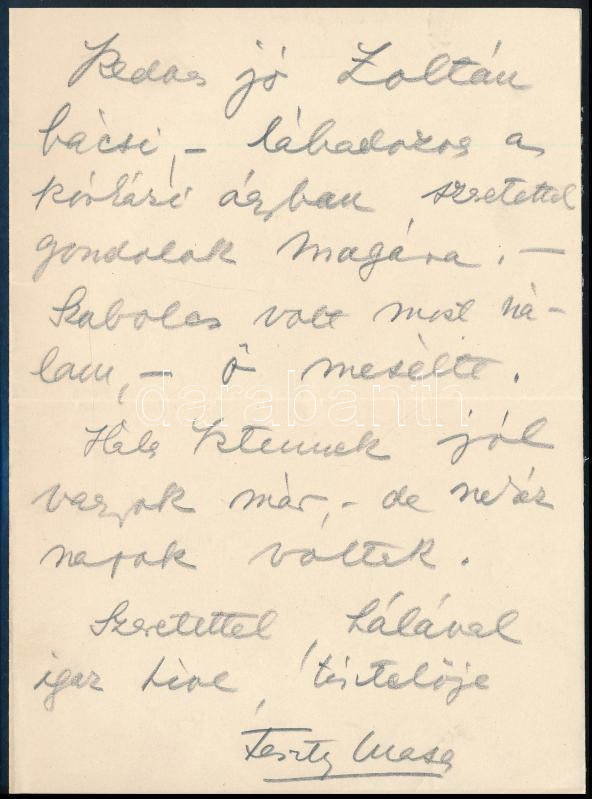 Kedves jó Zoltán
bácsi, – lábadozva a
kórházi ágyban szeretettel
gondolok Magára. –
Szabolcs volt most ná-
lam, – ő mesélte.
Hála Istennek jól
vagyok már, – de nehéz
napok voltak.
Szeretettel, hálával
igaz híve, tisztelője
Feszty Masa
darabanth